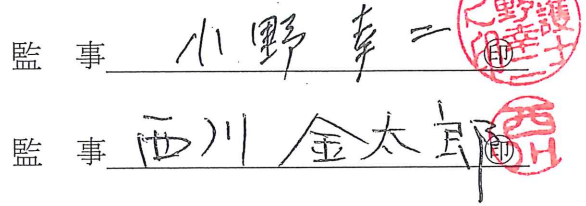 監 事 小野幸二 ㊞
監 事 西川 金太郎 ㊞